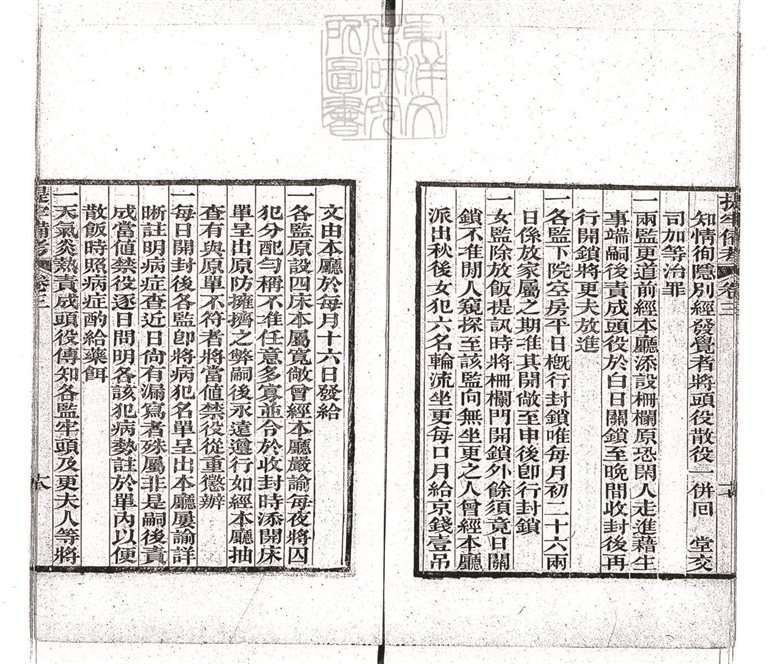 東洋文
化研究
所圖書
提牢備考 卷三
知情徇隱別經發覺者將頭役散役一併回 堂交
司加等治罪
一兩監更道前經本廳添設柵欄原恐閑人走進藉生
事端嗣後責成頭役於白日關鎖至晚間收封後再
行開鎖將更夫放進
一各監下院空房平日槪行封鎖唯每月初二十六兩
日係放家屬之期准其開敞至申後卽行封鎖
一女監除放飯提訊時將柵欄門開鎖外餘須竟日關
鎖不准閒人窺探至該監向無坐更之人曾經本廳
派出秋後女犯六名輪流坐更每口月給京錢壹吊
文由本廳於每月十六日發給
一各監原設四床本屬寬敞曾經本廳嚴諭每夜將囚
犯分配勻稱不准任意多寡並令於收封時添開床
單呈出原防擁擠之弊嗣後永遠遵行如經本廳抽
查有與原單不符者將當値禁役從重懲辦
一每日開封後各監卽將病犯名單呈出本廳屢諭詳
晰註明病症查近日尙有漏寫者殊屬非是嗣後責
成當値禁役逐日問明各該犯病勢註於單內以便
散飯時照病症酌給藥餌
一天氣炎熱責成頭役傳知各監牢頭及更夫人等將
提牢備考 卷三